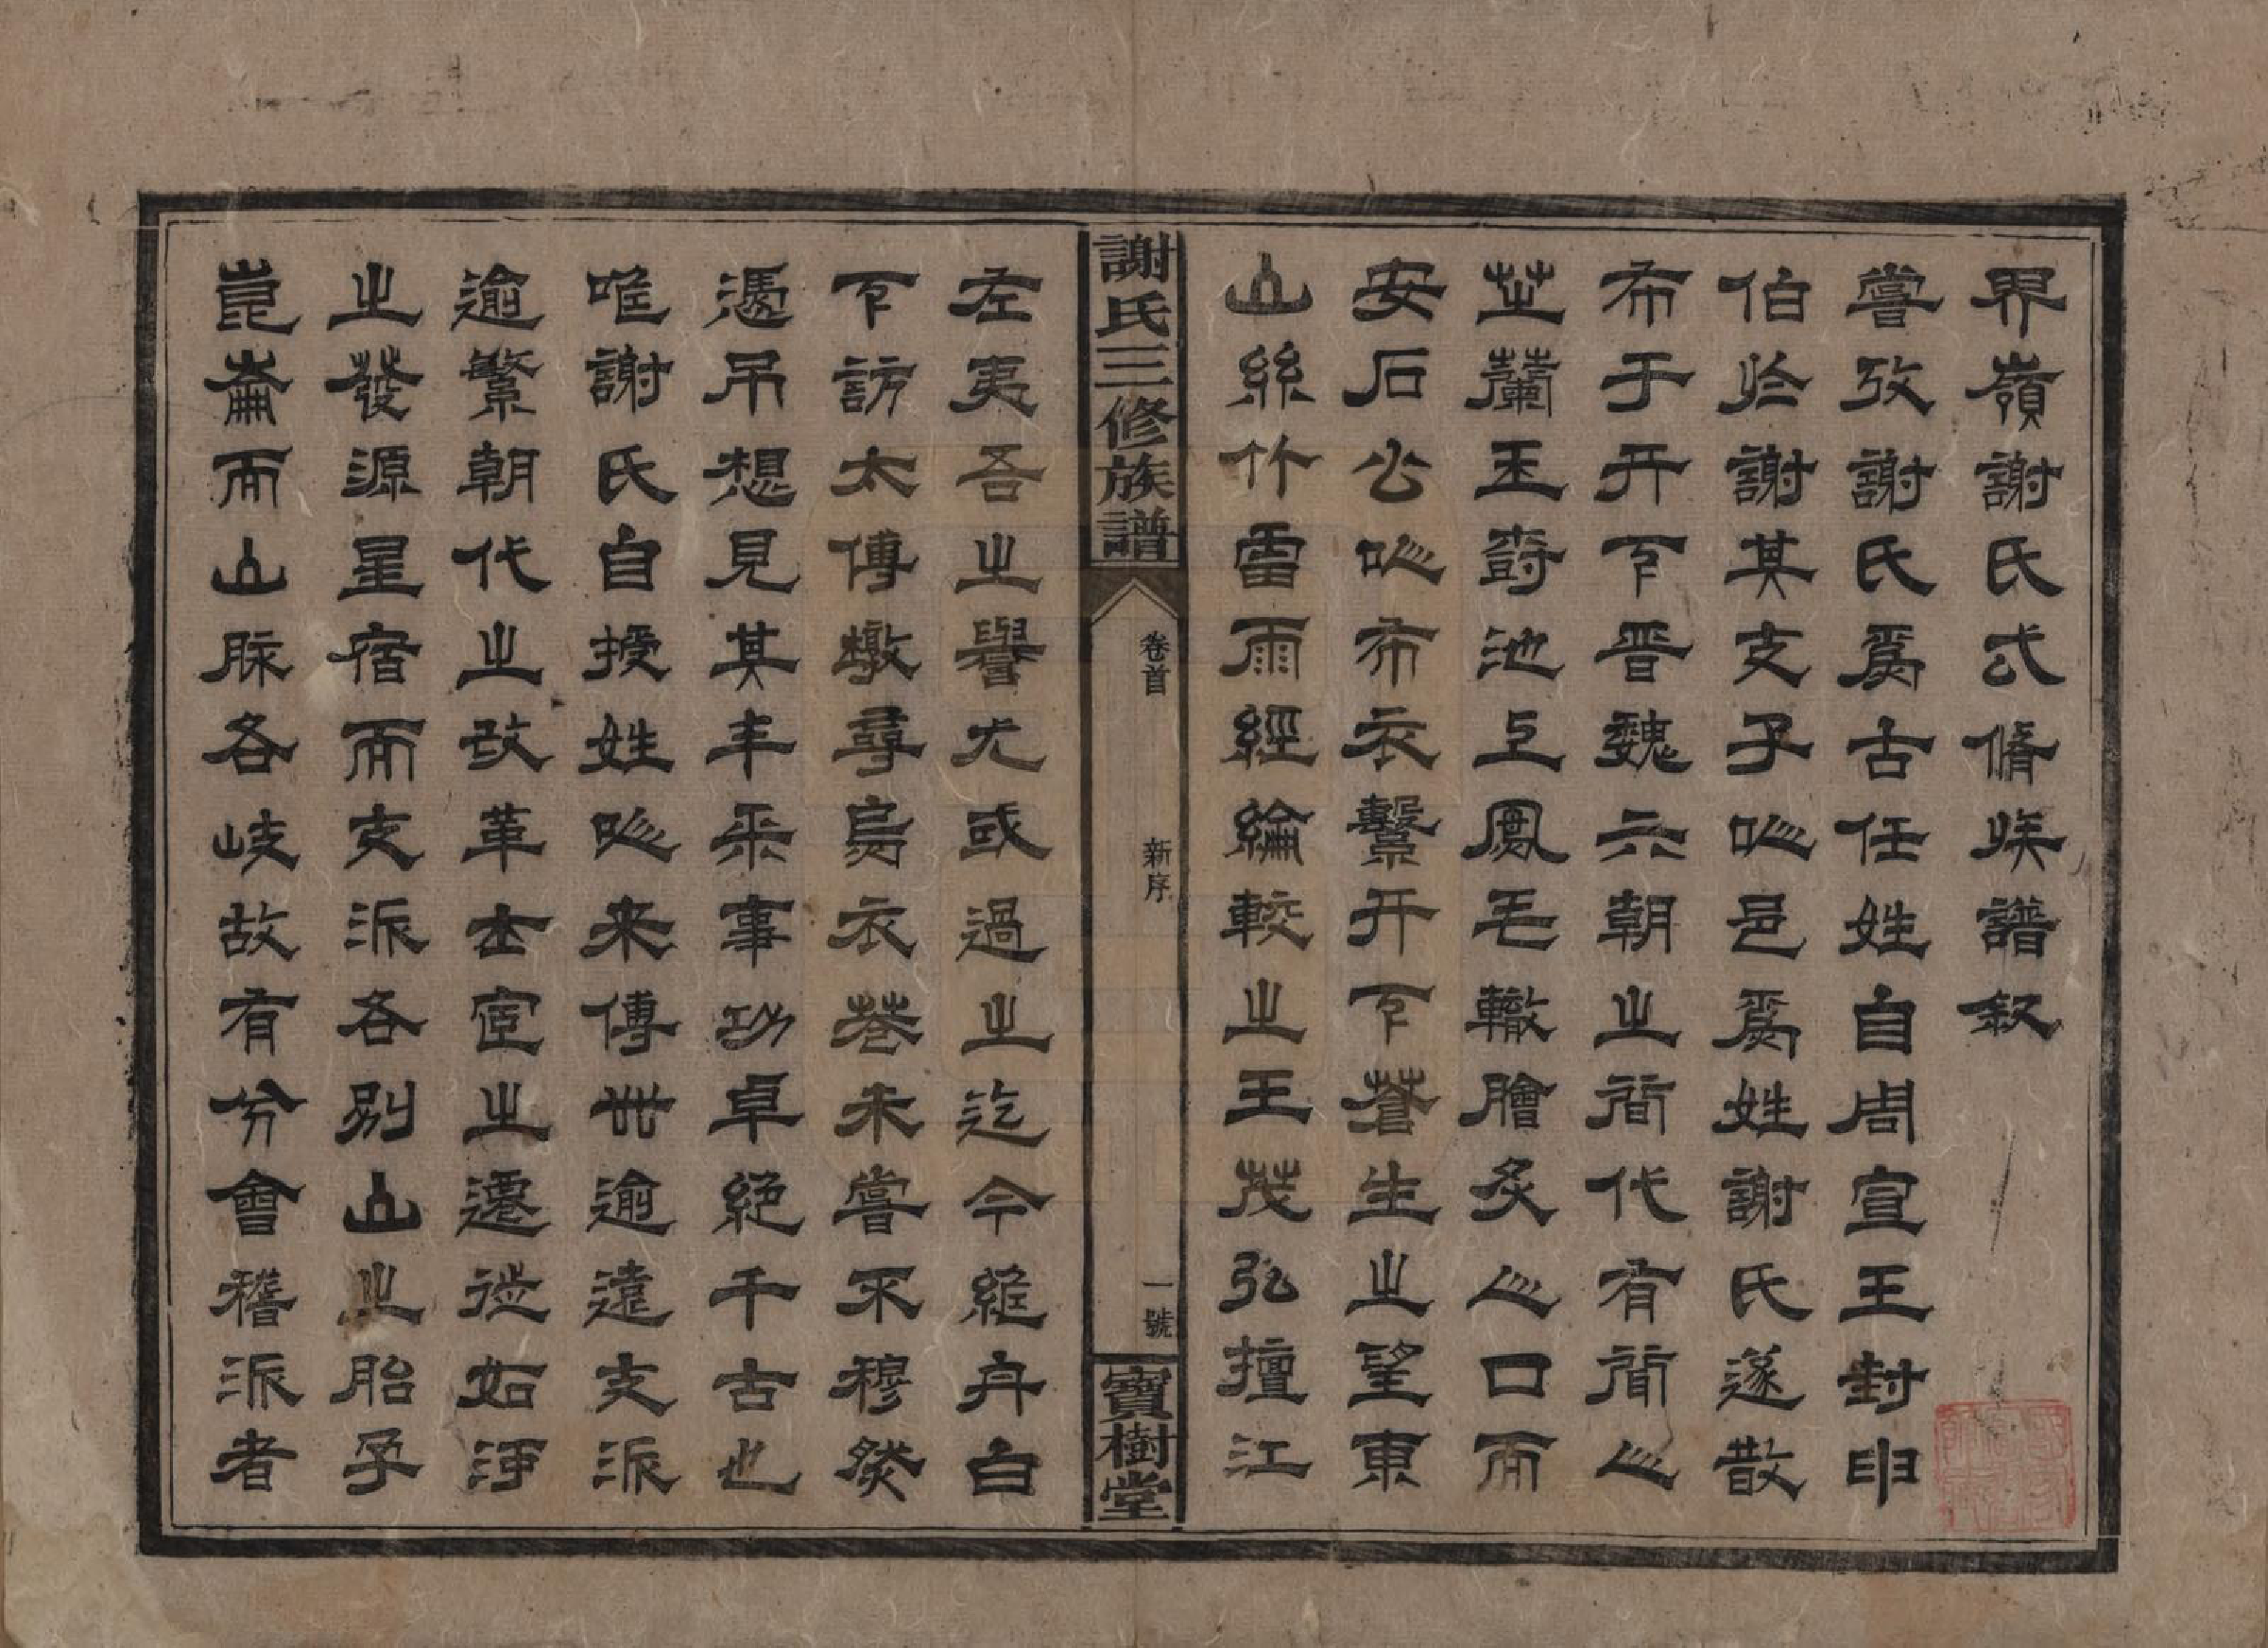 界嶺謝氏弎脩族譜叙
嘗攷謝氏爲古任姓自周宣王封申
伯於謝其支子㕥邑爲姓謝氏遂散
布于天下晋魏六朝之間代有聞人
芝蘭玉樹池上鳳毛轍膾炙人口而
安石公㕥布衣繫天下蒼生之望東
山絲竹雷雨經綸較之王茂弘擅江
謝氏三修族譜
卷首
新序
一號
寶樹堂
左夷吾之譽尤或過之迄今絕舟白
下訪太傅墩尋烏衣巷未嘗不穆然
憑吊想見其丰采事功卓絕千古也
唯謝氏自授姓㕥來傳世逾遠支派
逾繁朝代之改革士宦之遷徙如河
之發源星宿而支派各別山之胎孕
崑崙而山脉各岐故有分會稽派者